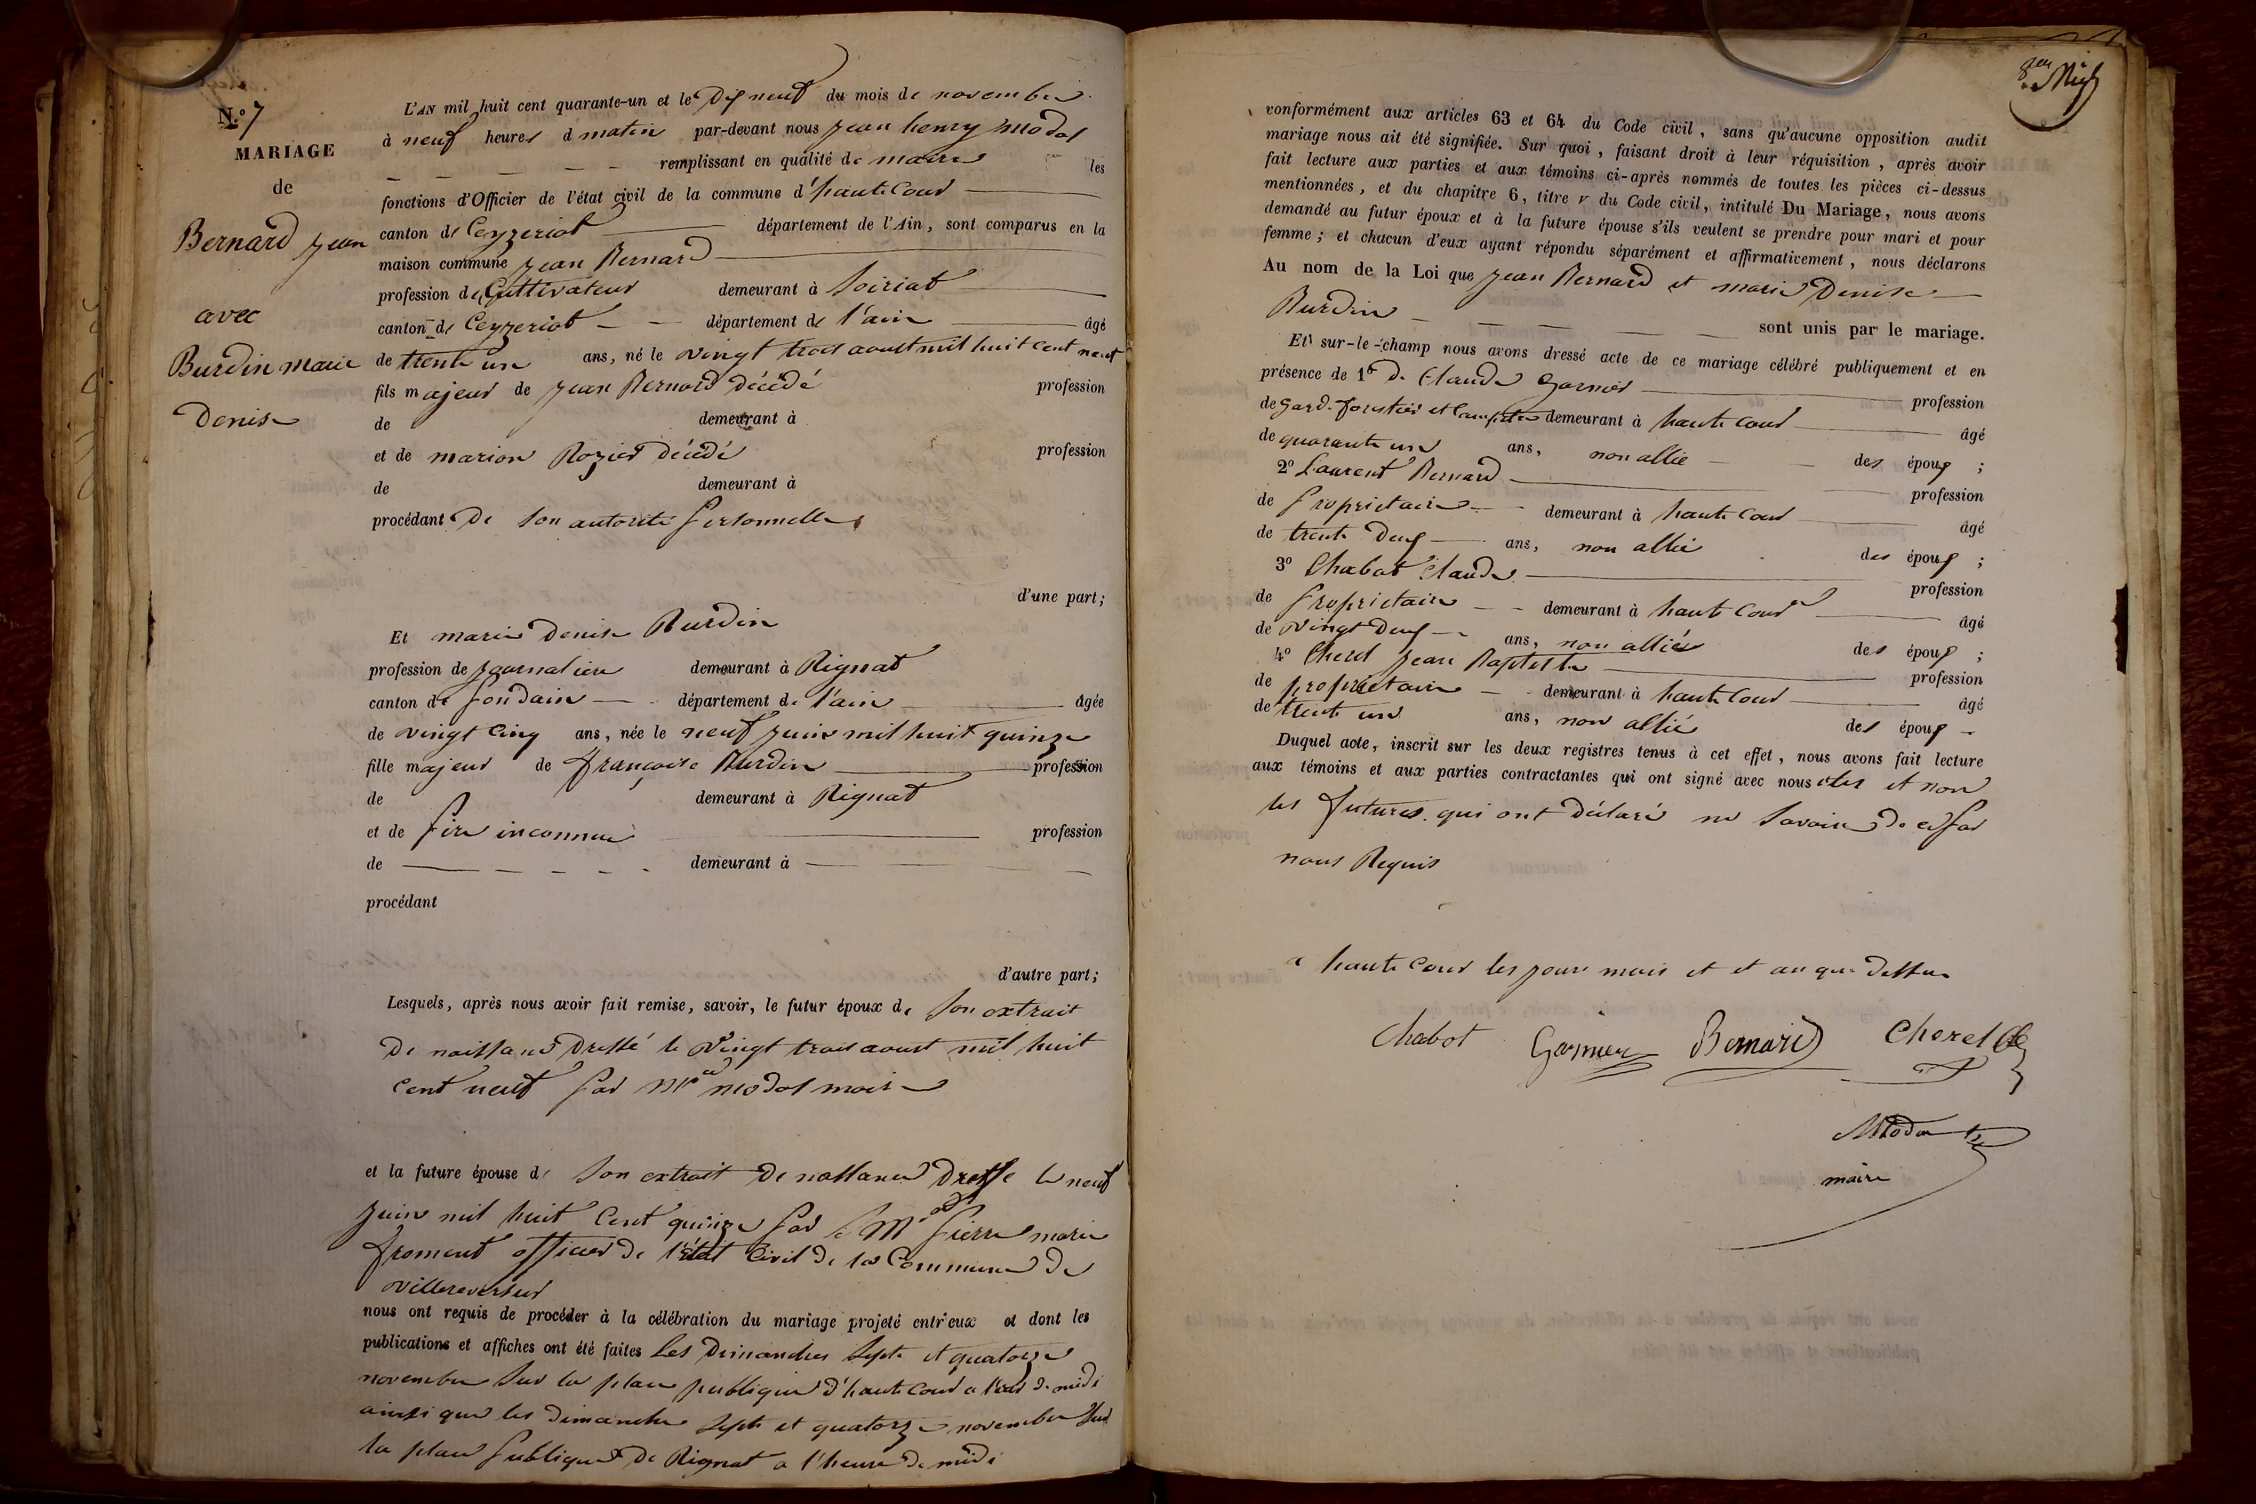 N.º 7
MARIAGE
de
Bernard jean
avec
Burdin marie
Denise
L'AN mil huit cent quarante-un et le dix neuf du mois de novembre
à neuf heures d matin par-devant nous jean henry modas
remplissant en qualité de maire les
fonctions d'Officier de l'état civil de la commune d'haute Cour
canton de Ceyzeriat département de l'Ain, sont comparus en la
maison commune jean Bernard
profession de Cultivateur demeurant à Soiriat
canton de Ceyzeriat département de l'ain âgé
de trente un ans, né le vingt trois aoust mil huit cent neuf
fils majeur de jean Bernard décédé profession
de demeurant à
et de marion Rozier décédé profession
de demeurant à
procédant de son autorité personnelle
d'une part;
Et marie Denise Burdin
profession de journaliere demeurant à Rignat
canton de pondain département de l'ain âgée
de vingt cinq ans, née le neuf juin mil huit quinze
fille majeur de françoise Burdin profession
de demeurant à Rignat
et de père inconnue profession
de demeurant à
procédant
d'autre part;
Lesquels, après nous avoir fait remise, savoir, le futur époux de son extrait
de naissance dressé le vingt trois aoust mil huit
cent neuf par Mr modas maire
et la future épouse de son extrait de naissance dresse le neuf
juin mil huit Cent quinze par Mr pierre marie
froment officier de l'état Civil de la Commune de
villereversur
nous ont requis de procéder à la célébration du mariage projeté entr'eux et dont les
publications et affiches ont été faites les dimanches sept et quatorze
novembre sur la place publique d'haute Cour a l'heur de midi
ainsi que les dimanche sept et quatorze novembre sur
la place publique de Rignat a l'heure de midi
conformément aux articles 63 et 64 du Code civil, sans qu'aucune opposition audit
mariage nous ait été signifiée. Sur quoi, faisant droit à leur réquisition, après avoir
fait lecture aux parties et aux témoins ci-après nommés de toutes les pièces ci-dessus
mentionnées, et du chapitre 6, titre v du Code civil, intitulé Du Mariage, nous avons
demandé au futur époux et à la future épouse s'ils veulent se prendre pour mari et pour
femme; et chacun d'eux ayant répondu séparément et affirmativement, nous déclarons
Au nom de la Loi que jean Bernard et marie Denise
Burdin sont unis par le mariage.
Et sur-le-champ nous avons dressé acte de ce mariage célébré publiquement et en
présence de 1º de Claude Garnier profession
de gard. forestier et Campetre demeurant à haute Cour âgé
de quarante un ans, non allié des époux;
2º Laurent Bernard profession
de proprietaire demeurant à haute Cour âgé
de trente deux ans, non allié des époux;
3º Chabot Claude profession
de proprietaire demeurant à haute Cour âgé
de vingt deux ans, non alliés des époux;
4º Cherel jean Baptiste profession
de proprietaire demeurant à haute Cour âgé
de trente un ans, non allié des époux
Duquel acte, inscrit sur les deux registres tenus à cet effet, nous avons fait lecture
aux témoins et aux parties contractantes qui ont signé avec nous et non
les futures qui ont déclaré ne savoir de ce par
nous Requis
a haute Cour les jour mois et et an que dessus
Chabot Garnier Bernard Cherel
Moda
maire